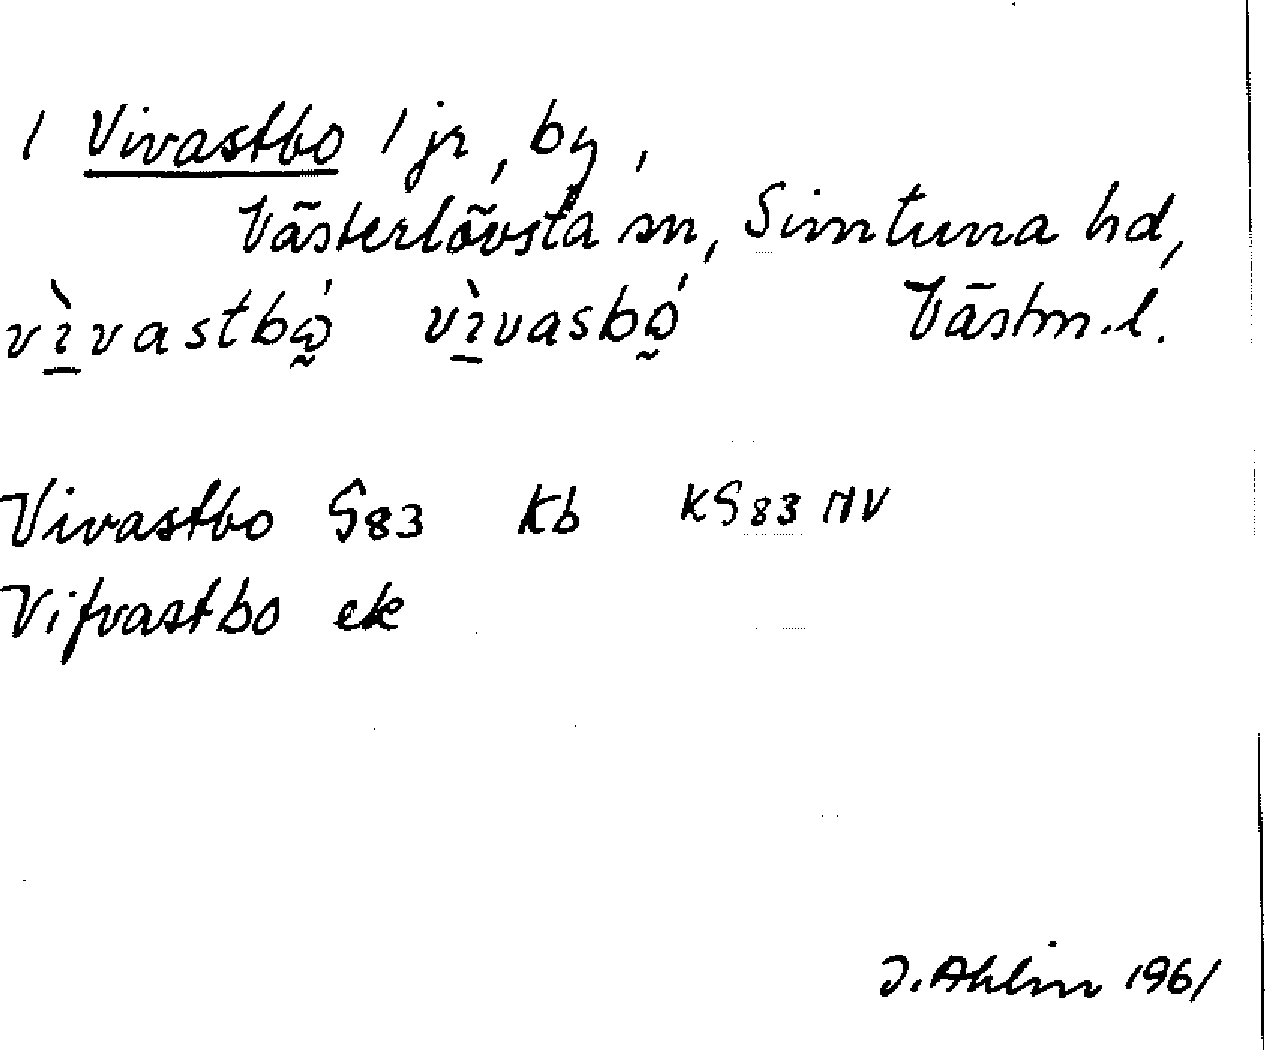 1 Vivastbo 1 jr, by,
Västerlövsta sn, Simtuna hd,
vì̱vastbώ̰ vì̱vasbώ̰ Västm.l.
Vivastbo S83 Kb KS83 NV
Vifvastbo ek
J. Ahlin 1961